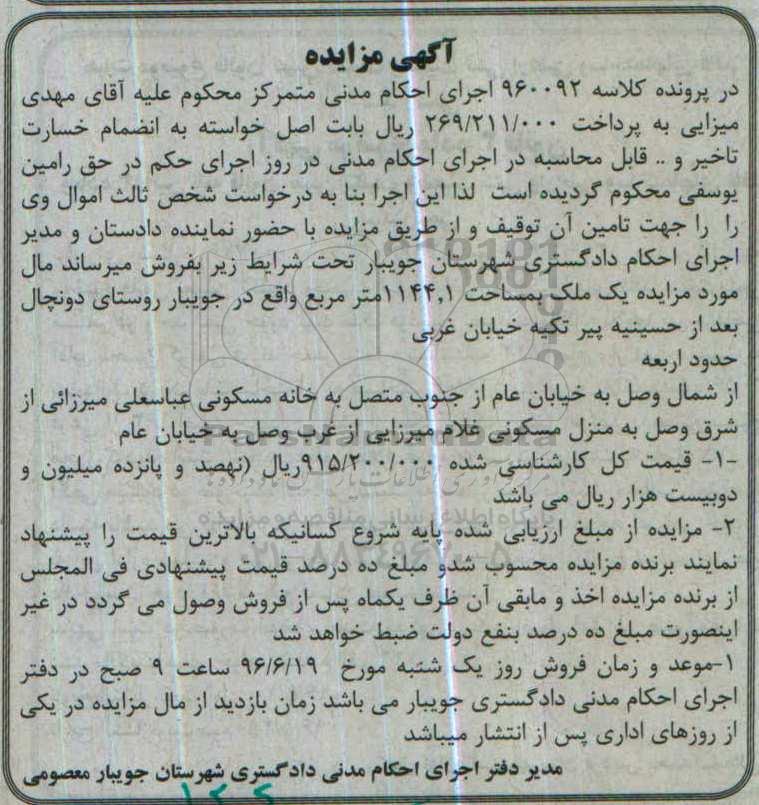 آگهی مزایده
در پرونده کلاسه ۹۶۰۰۹۲ اجرای احکام مدنی متمرکز محکوم علیه آقای مهدی
میزایی به پرداخت ۲۶۹/۲۱۱/۰۰۰ ریال بابت اصل خواسته به انضمام خسارت
تاخیر و .. قابل محاسبه در اجرای احکام مدنی در روز اجرای حکم در حق رامین
یوسفی محکوم گردیده است لذا این اجرا بنا به درخواست شخص ثالث اموال وی
را را جهت تامین آن توقیف و از طریق مزایده با حضور نماینده دادستان و مدیر
اجرای احکام دادگستری شهرستان جویبار تحت شرایط زیر بفروش میرساند مال
مورد مزایده یک ملک بمساحت ۱۱۴۴,۱متر مربع واقع در جویبار روستای دونچال
بعد از حسینیه پیر تکیه خیابان غربی
حدود اربعه
از شمال وصل به خیابان عام از جنوب متصل به خانه مسکونی عباسعلی میرزائی از
شرق وصل به منزل مسکونی غلام میرزایی از غرب وصل به خیابان عام
-۱- قیمت کل کارشناسی شده ۹۱۵/۲۰۰/۰۰۰ریال (نهصد و پانزده میلیون و
دوبیست هزار ریال می باشد
۲- مزایده از مبلغ ارزیابی شده پایه شروع کسانیکه بالاترین قیمت را پیشنهاد
نمایند برنده مزایده محسوب شدو مبلغ ده درصد قیمت پیشنهادی فی المجلس
از برنده مزایده اخذ و مابقی آن ظرف یکماه پس از فروش وصول می گردد در غیر
اینصورت مبلغ ده درصد بنفع دولت ضبط خواهد شد
۱-موعد و زمان فروش روز یک شنبه مورخ ۹۶/۶/۱۹ ساعت ۹ صبح در دفتر
اجرای احکام مدنی دادگستری جویبار می باشد زمان بازدید از مال مزایده در یکی
از روزهای اداری پس از انتشار میباشد
مدیر دفتر اجرای احکام مدنی دادگستری شهرستان جویبار معصومی